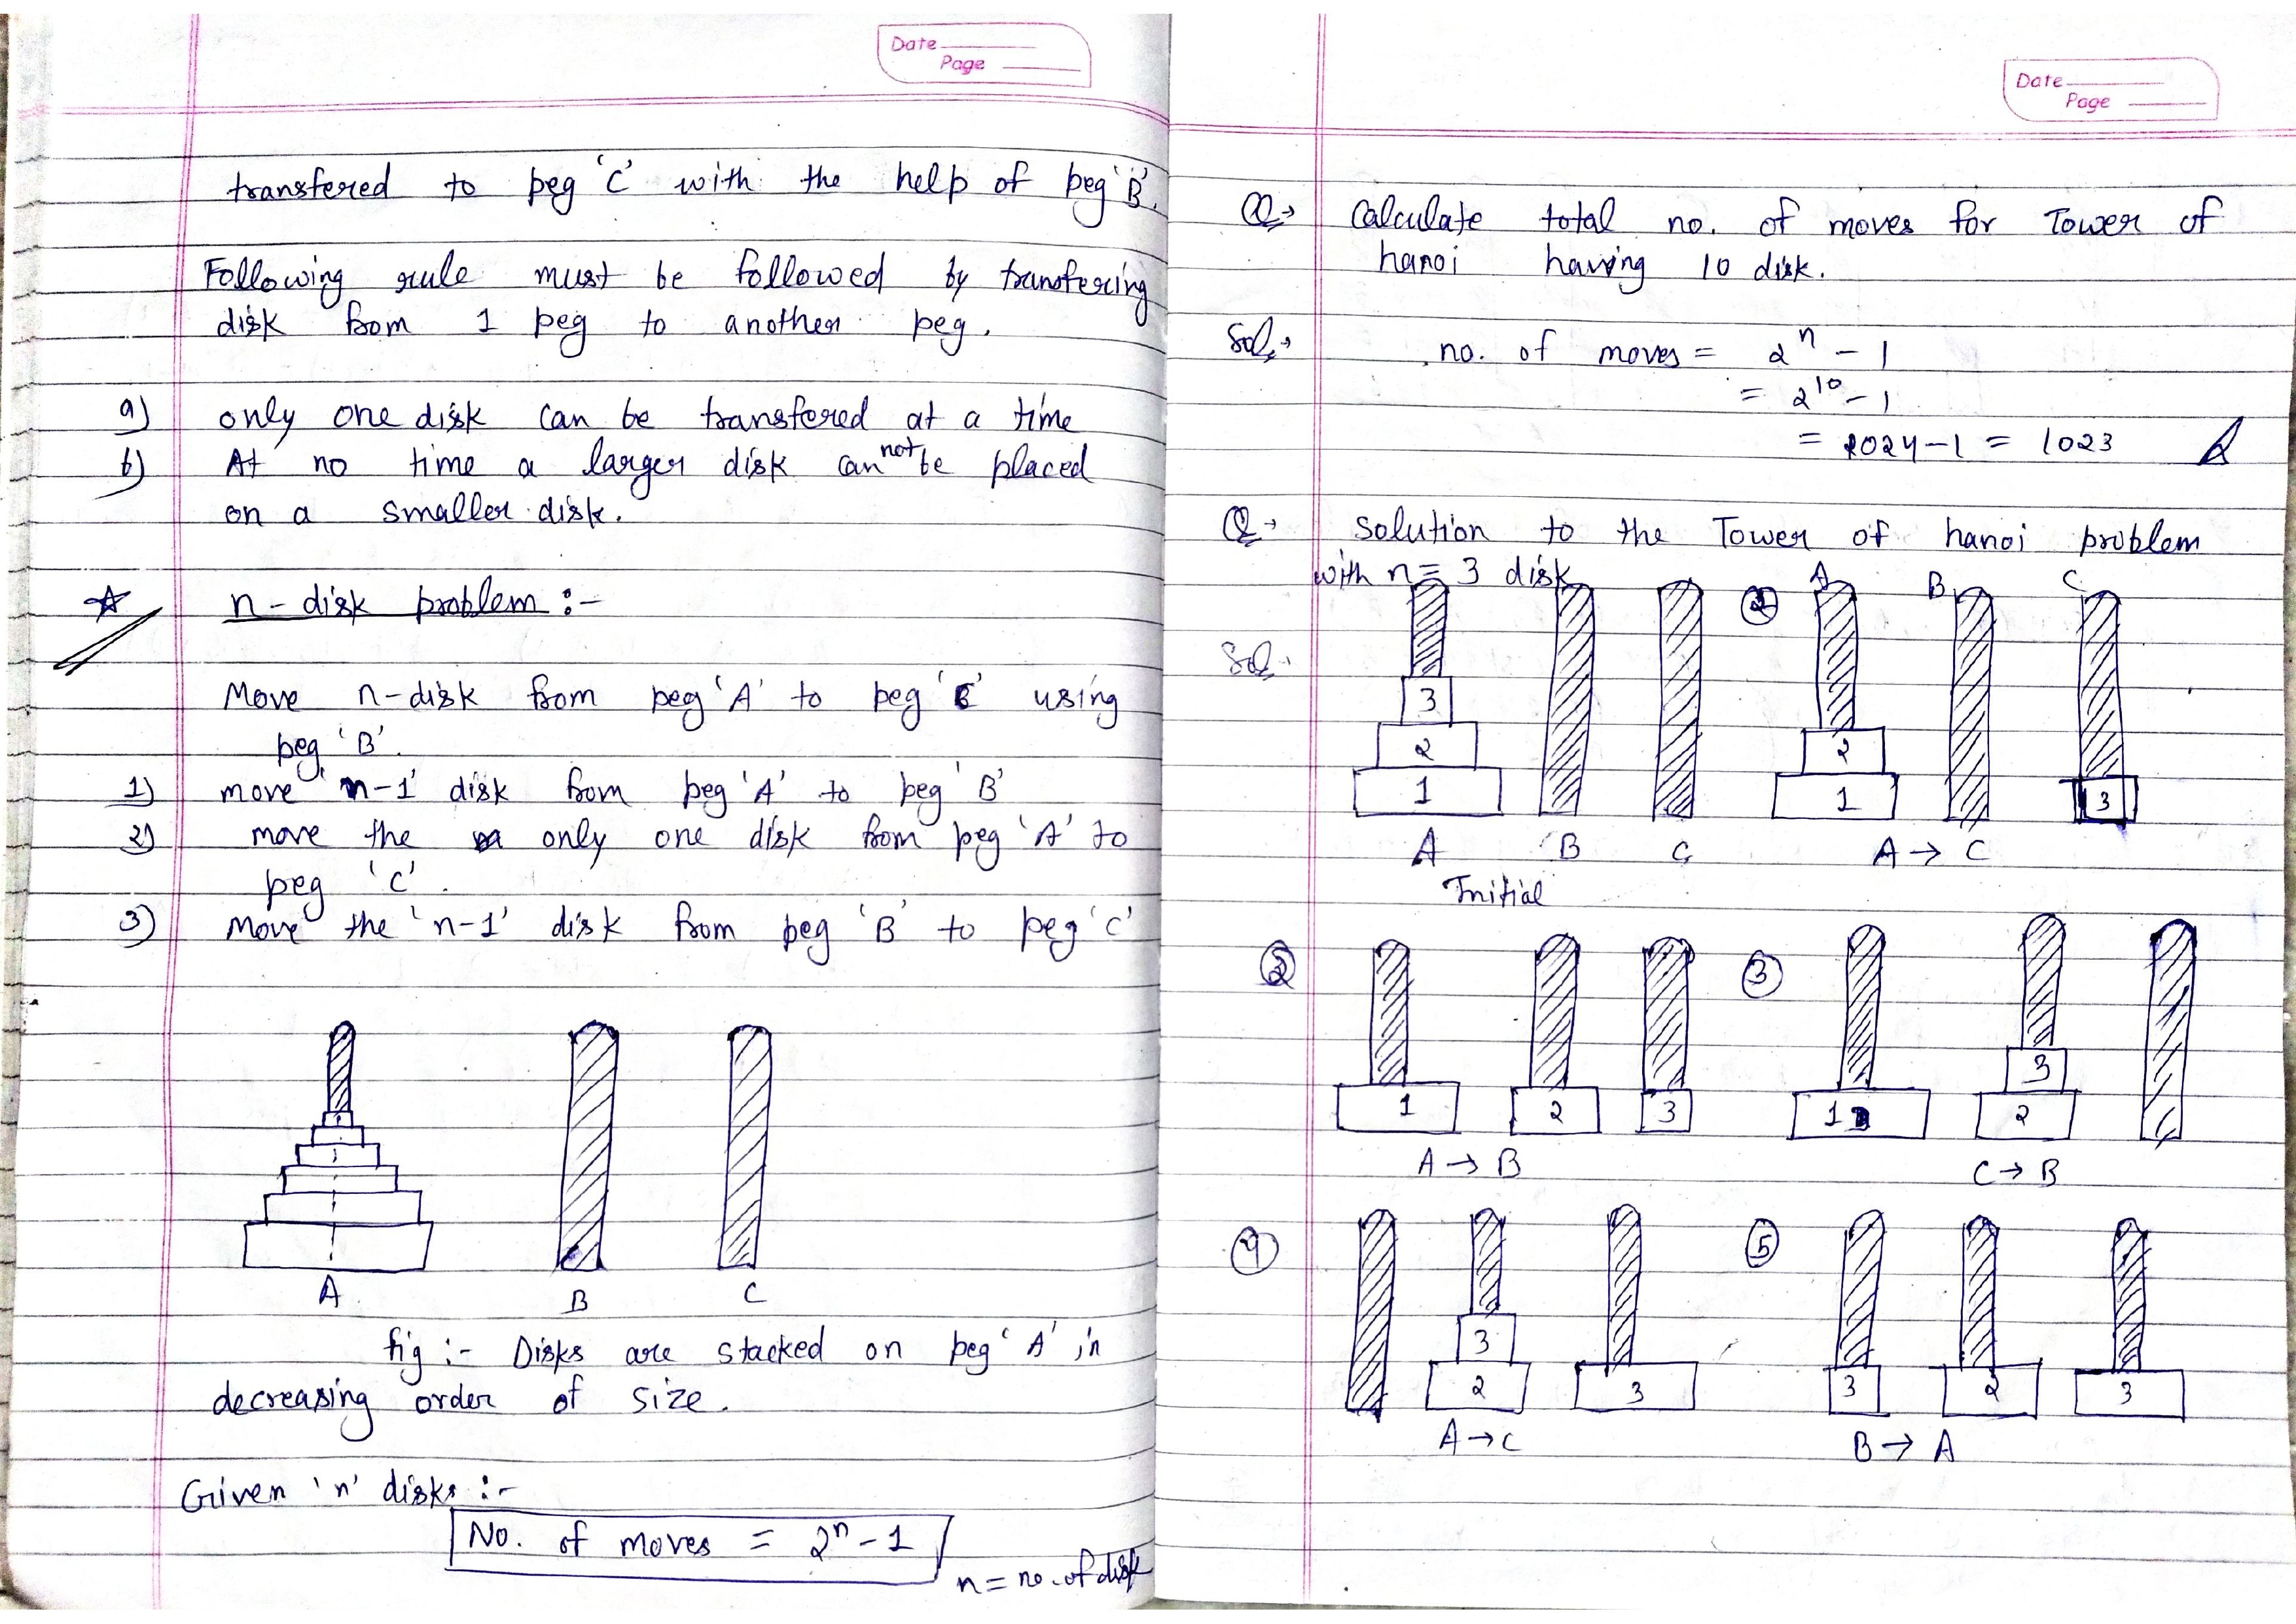 Date
Page
transfered to peg 'C' with the help of peg 'B'.
Following rule must be followed by transfering
disk from 1 peg to another peg.
a) only one disk can be transfered at a time
b) At no time a larger disk can not be placed
on a smaller disk.
n-disk problem :-
Move n-disk from peg 'A' to peg 'C' using
peg 'B'.
1) move 'n-1' disk from peg 'A' to peg 'B'
2) move the only one disk from peg 'A' to
peg 'C'.
3) Move the 'n-1' disk from peg 'B' to peg 'C'
A B C
fig :- Disks are stacked on peg 'A' in
decreasing order of size.
Given 'n' disks :-
No. of moves = 2^n - 1
n = no. of disk
Date
Page
Q→ Calculate total no. of moves for Tower of
hanoi having 10 disk.
Sol→ no. of moves = 2^n - 1
= 2^10 - 1
= 1024 - 1 = 1023
Q→ Solution to the Tower of hanoi problem
with n = 3 disk
Sol→
3
2
1
A B C
Initial
A B C
2
1 3
A → C
② 1 2 3
A → B
③ 3
1 2
C → B
④ 3
2 3
A → C
⑤ 3 2 3
B → A